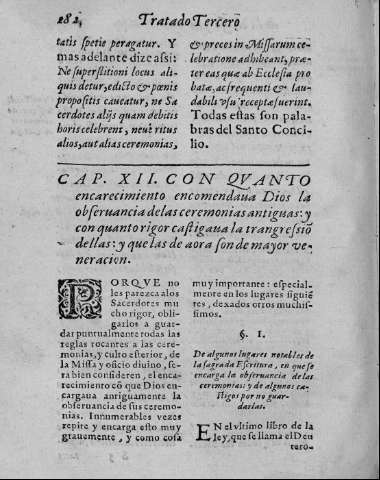 282. Tratado Tercero
tatis spetie peragatur. Y
mas adelante dize assi:
Ne superstitioni locus ali-
quis detur, edicto & pœnis
propositis caueatur, ne Sa
cerdotes alijs quam debitis
horis celebrent, neue ritus
alios, aut alias ceremonias,
& preces in Missarum ce-
lebratione adhibeant, præ-
ter eas quæ ab Ecclesia pro
batæ, ac frequenti & lau-
dabili vsu receptæ fuerint.
Todas estas son pala-
bras del Santo Conci-
lio.
CAP. XII. CON QVANTO
encarecimiento encomendaua Dios la
obseruancia de las ceremonias antiguas: y
con quanto rigor castigaua la trangressiō
dellas: y que las de aora son de mayor ve-
neracion.
PORQVE no
les parezca a los
Sacerdotes mu
cho rigor, obli-
garlos a guar-
dar puntualmente todas las
reglas tocantes a las cere-
monias, y culto esterior, de
la Missa y oficio diuino, se-
ra bien consideren, el enca-
recimiento cō que Dios en-
cargaua antiguamente la
obseruancia de sus ceremo-
nias. Innumerables vezes
repite y encarga esto muy
grauemente, y como cosa
muy importante: especial-
mente en los lugares siguiē
tes, dexados otros muchis-
simos.
§. I.
De algunos lugares notables de
la sagrada Escritura, en que se
encarga la obseruancia de las
ceremonias: y de algunos ca-
stigos por no guar-
darlas.
EN el vltimo libro de la
ley, que se llama el Deu
tero-